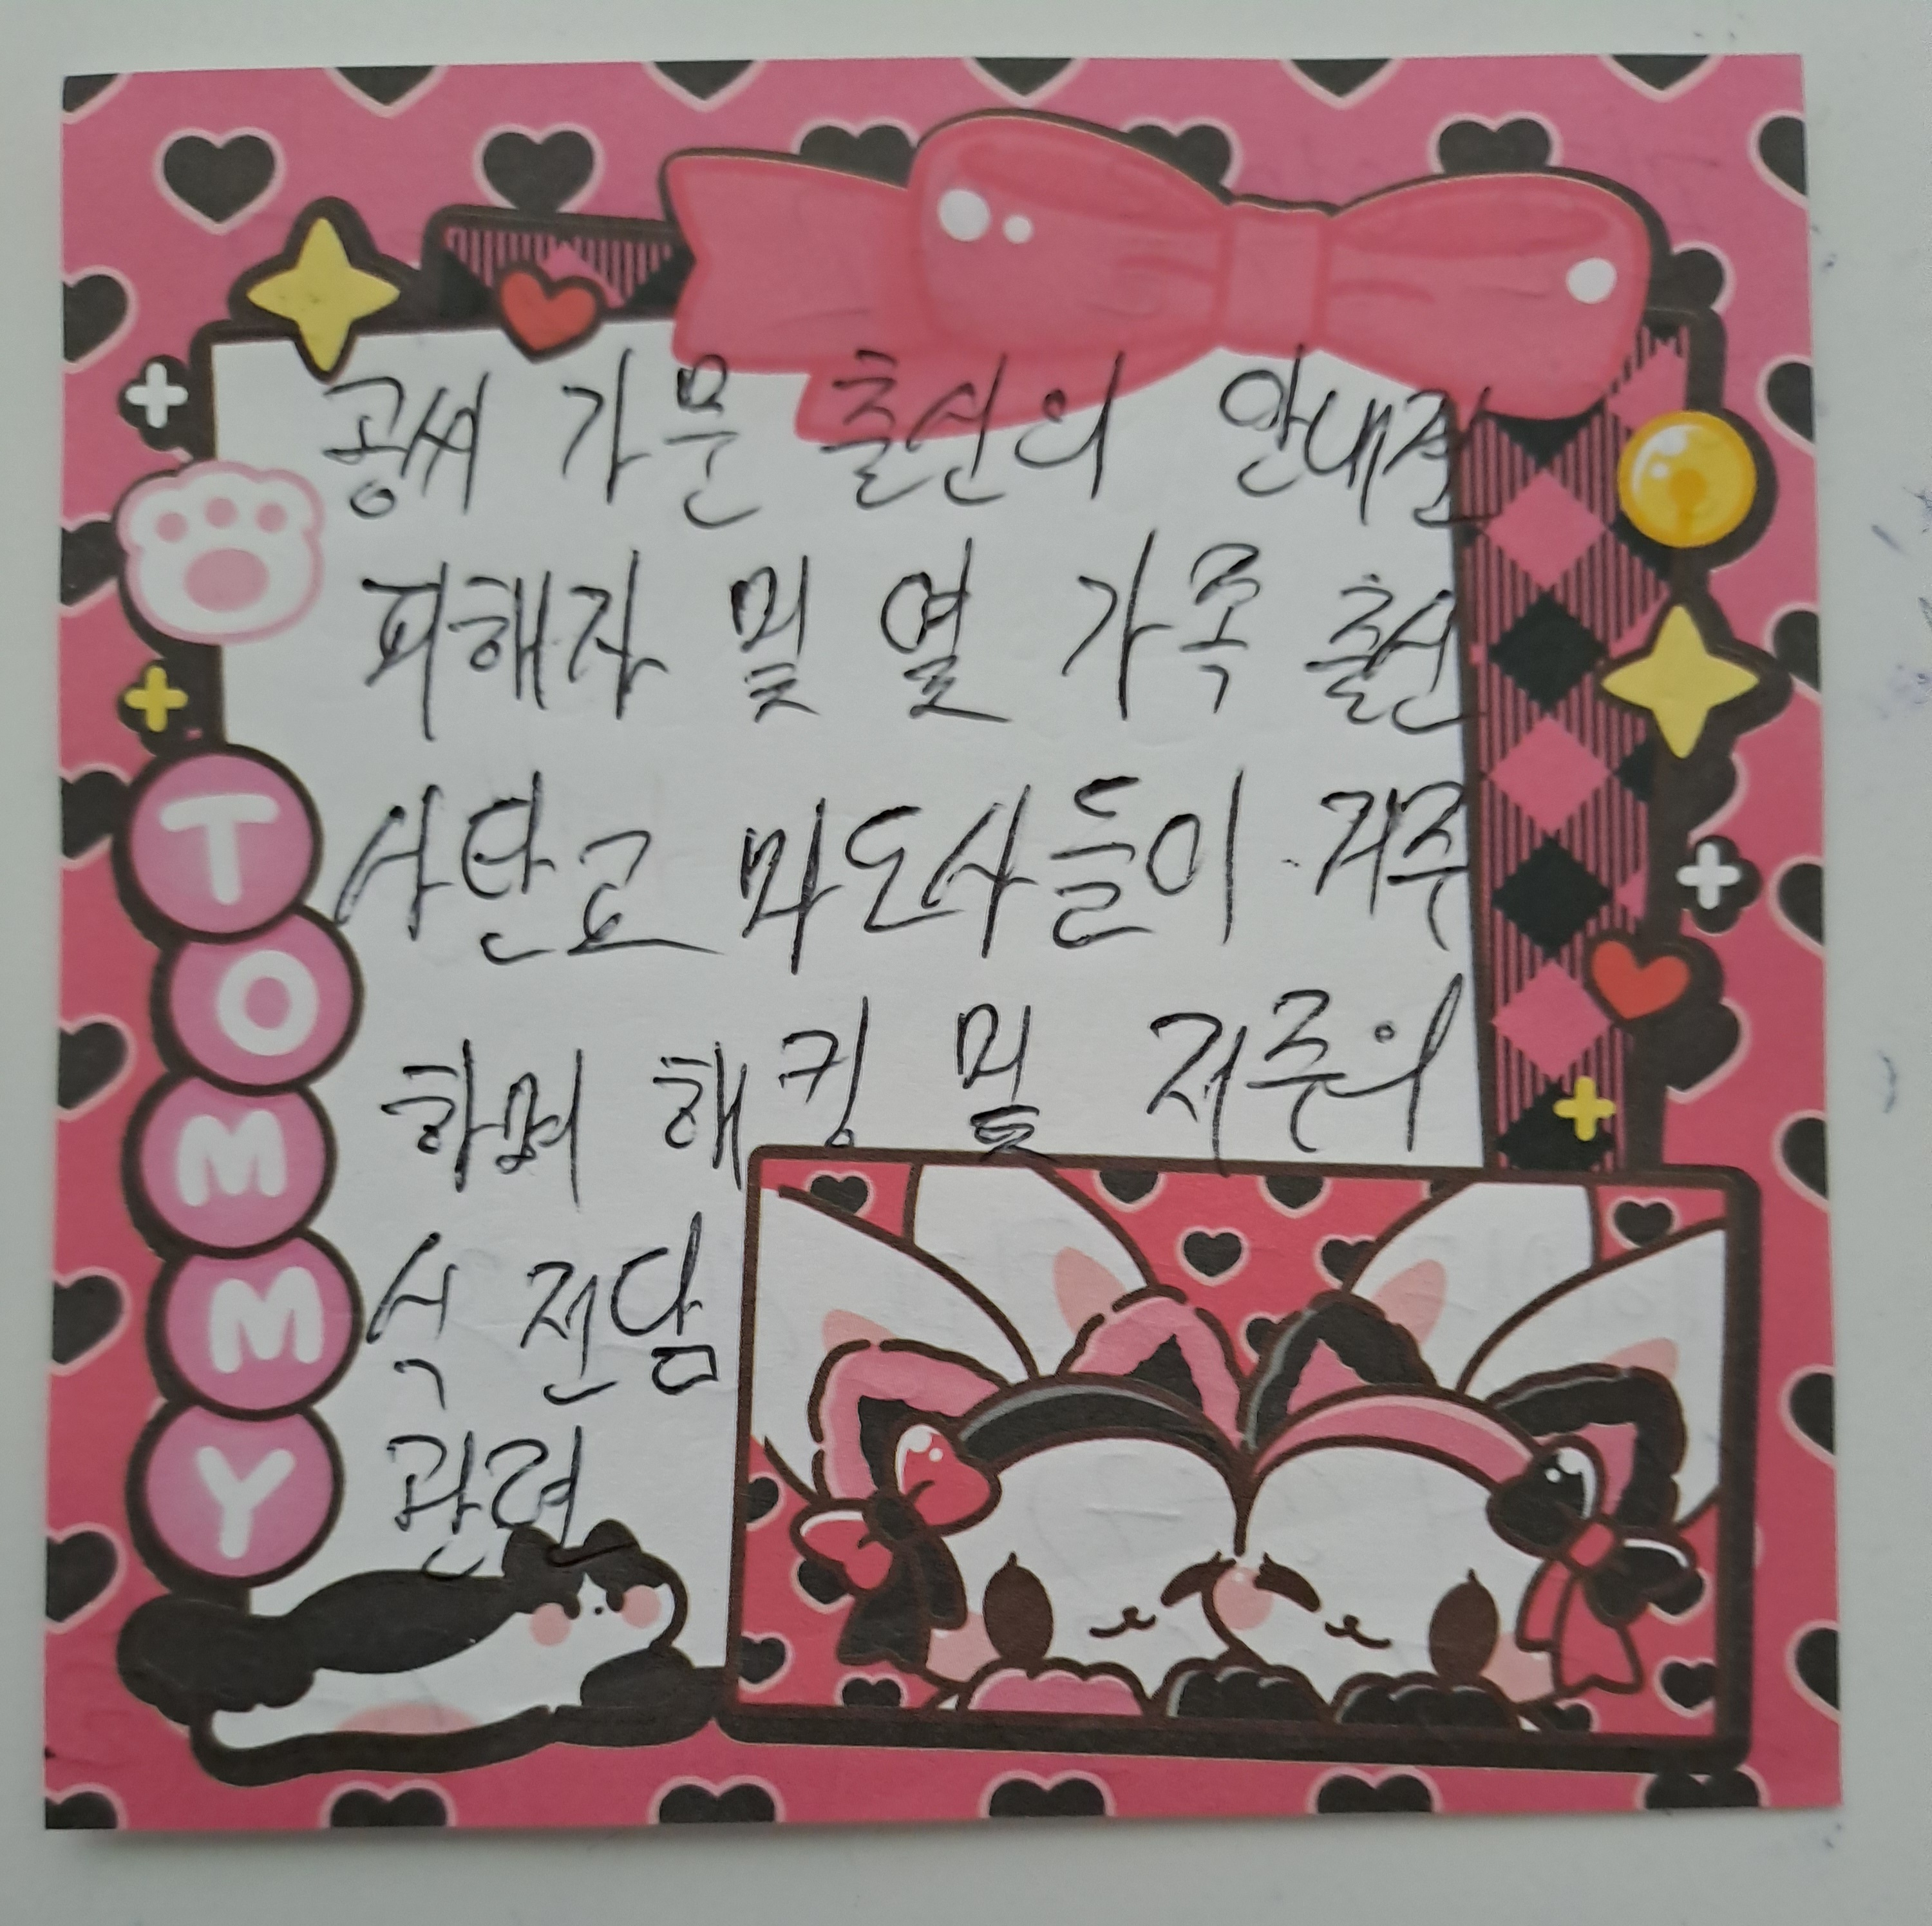 공씨 가문 출신의 안내견
피해자 및 열 가족 출신
사탄교 마도사들이 거주
하며 해킹 및 저주의
식 전담
관련
TOMMY